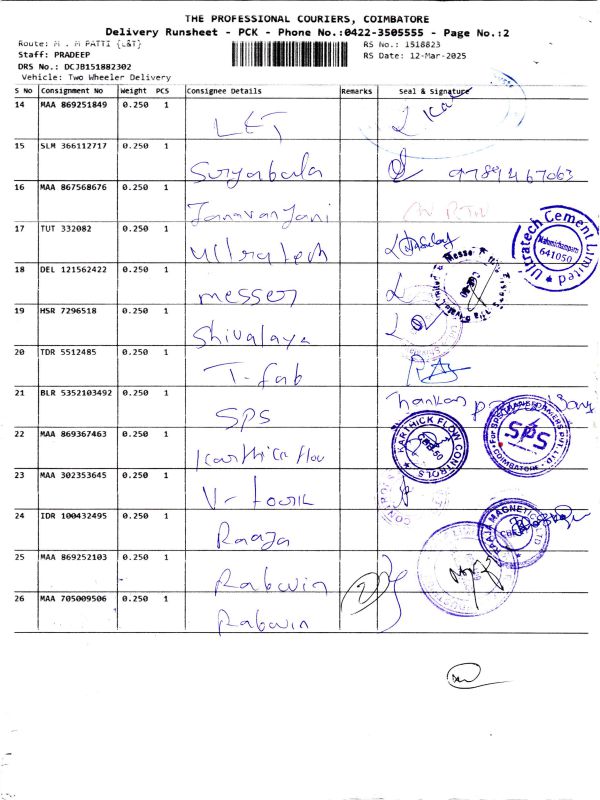 THE PROFESSIONAL COURIERS, COIMBATORE
Delivery Runsheet - PCK - Phone No.:0422-3505555 - Page No.:2
Route: M . M PATTI {L&T}
RS No.: 1518823
Staff: PRADEEP
RS Date: 12-Mar-2025
DRS No.: DCJB151882302
Vehicle: Two Wheeler Delivery
S No Consignment No Weight PCS Consignee Details Remarks Seal & Signature
14 MAA 869251849 0.250 1 L&T
15 SLM 366112717 0.250 1 Suryabala 9789467063
16 MAA 867568676 0.250 1 Janavanjani
17 TUT 332082 0.250 1 Ultratech
Ultratech Cement Limited
641050
18 DEL 121562422 0.250 1 messer
Messer
19 HSR 7296518 0.250 1 Shivalaya
20 TDR 5512485 0.250 1 T-fab
21 BLR 5352103492 0.250 1 SPS
SPS
COIMBATORE
22 MAA 869367463 0.250 1 Karthick flow
KARTHICK FLOW CONTROLS
23 MAA 302353645 0.250 1 V-
24 IDR 100432495 0.250 1 Raaja
RAAJA MAGNETICS LTD
25 MAA 869252103 0.250 1 Rabwin
26 MAA 705009506 0.250 1 Rabwin